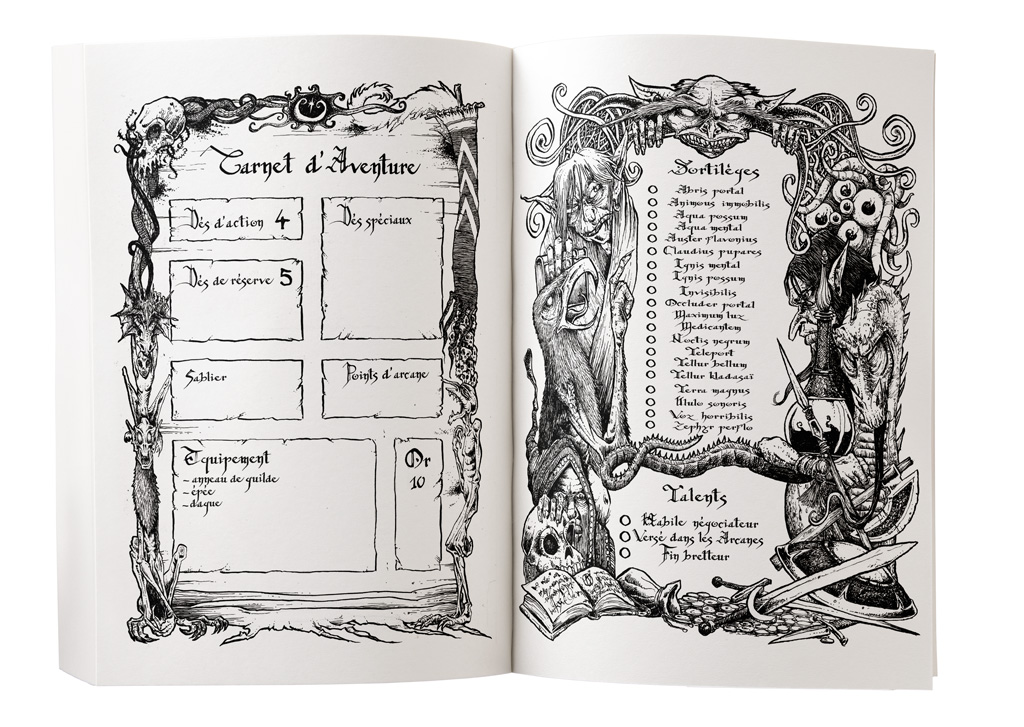 Carnet d'Aventure
Dés d'action 4
Dés spéciaux
Dés de réserve 5
Sablier
Points d'arcane
Equipement
- anneau de guilde
- épée
- dague
Or
10
Sortilèges
Abris portal
Animous immobilis
Aqua possum
Aqua mental
Auster flavonius
Claudius pupares
Ignis mental
Ignis possum
Invisibilis
Occluder portal
Maximum lux
Medicantem
Noctis negrum
Teleport
Tellur bellum
Tellur kladasaï
Terra magnus
Ululo sonoris
Vox horribilis
Zephyr perflo
Talents
Habile négociateur
Versé dans les Arcanes
Fin bretteur